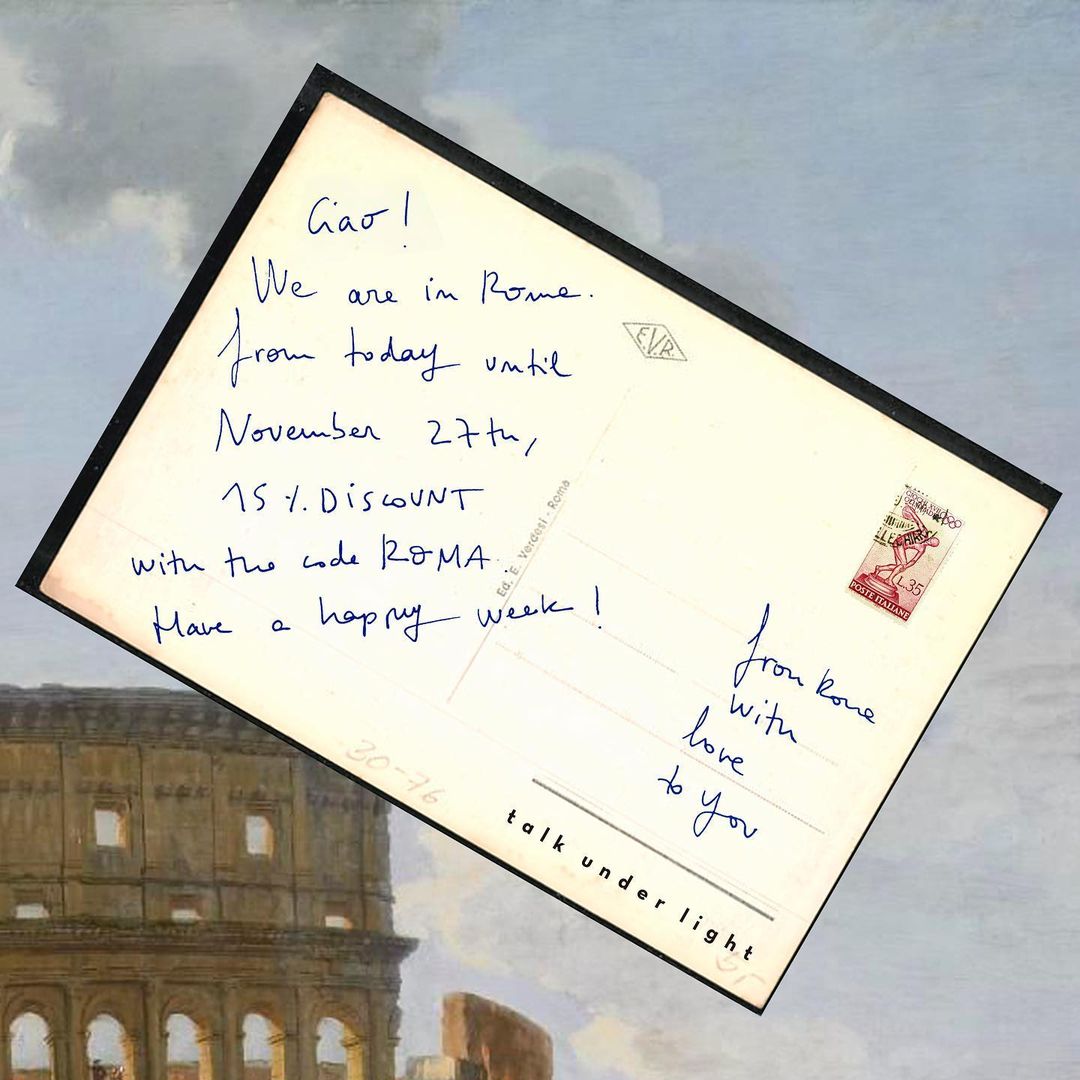 Ciao!
We are in Rome.
from today until
November 27th,
15 % DISCOUNT
with the code ROMA.
Have a happy week!
E.V.R.
Ed. E. Verdesi - Roma
L.35
POSTE ITALIANE
from Rome
with
love
to you
30-76
talk under light
35